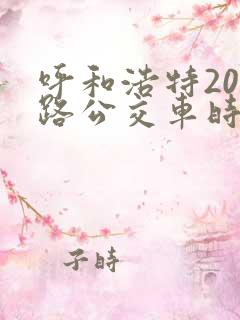 呼和浩特20
路公交车时
子時